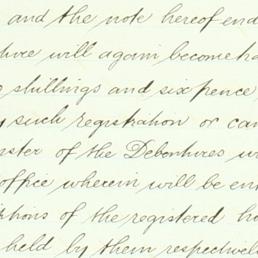 and the note hereof end
will again become
shillings and six pence
such registration or can
of the Debentures
office wherein will be en
of the registered ho
held by them respectivel